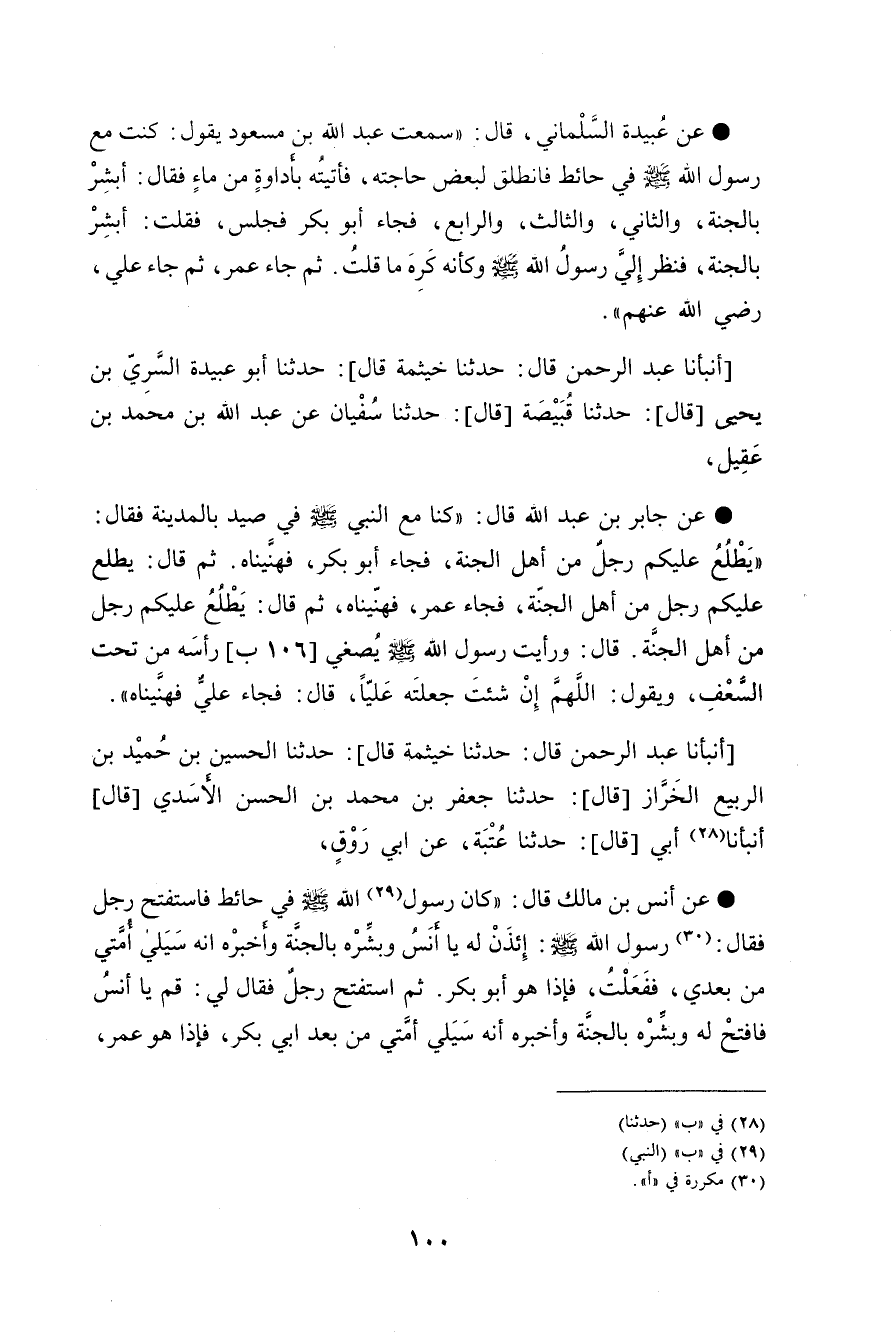 ● عن عُبيدة السَّلْماني، قال: «سمعت عبد الله بن مسعود يقول: كنت مع
رسول الله ﷺ في حائط فانطلق لبعض حاجته، فأتيتُه بأَداوةٍ من ماءٍ فقال: أبشِرْ
بالجنة، والثاني، والثالث، والرابع، فجاء أبو بكر فجلس، فقلت: أبشِرْ
بالجنة، فنظر إليَّ رسولُ الله ﷺ وكأنه كَرِهَ ما قلتُ. ثم جاء عمر، ثم جاء علي،
رضي الله عنهم».
[أنبأنا عبد الرحمن قال: حدثنا خيثمة قال]: حدثنا أبو عبيدة السَّرِيّ بن
يحيى [قال]: حدثنا قُبَيْصَة [قال]: حدثنا سُفْيان عن عبد الله بن محمد بن
عَقِيل،
● عن جابر بن عبد الله قال: «كنا مع النبي ﷺ في صيد بالمدينة فقال:
«يَطْلُعُ عليكم رجلٌ من أهل الجنة، فجاء أبو بكر، فهنَّيناه. ثم قال: يطلع
عليكم رجل من أهل الجنّة، فجاء عمر، فهنّيناه، ثم قال: يَطْلُعُ عليكم رجل
من أهل الجنَّة. قال: ورأيت رسول الله ﷺ يُصغي [١٠٦ ب] رأسَه من تحت
السَّعْفِ، ويقول: اللَّهمَّ إنْ شئتَ جعلتَه عَليّاً، قال: فجاء عليٌّ فهنَّيناه».
[أنبأنا عبد الرحمن قال: حدثنا خيثمة قال]: حدثنا الحسين بن حُميْد بن
الربيع الخَرَّاز [قال]: حدثنا جعفر بن محمد بن الحسن الأَسَدي [قال]
أنبأنا(٢٨) أبي [قال]: حدثنا عُتْبَة، عن ابي رَوْقٍ،
● عن أنس بن مالك قال: «كان رسول(٢٩) الله ﷺ في حائط فاستفتح رجل
فقال:(٣٠) رسول الله ﷺ: إئذَنْ له يا أَنَسُ وبشِّرْه بالجنَّة وأَخبرْه انه سَيَلي أُمَّتي
من بعدي، ففَعَلْتُ، فإذا هو أبو بكر. ثم استفتح رجلٌ فقال لي: قم يا أنسُ
فافتحْ له وبشِّرْه بالجنَّة وأخبره أنه سَيَلي أمَّتي من بعد ابي بكر، فإذا هو عمر،
(٢٨) في «ب» (حدثنا)
(٢٩) في «ب» (النبي)
(٣٠) مكررة في «أ».
١٠٠